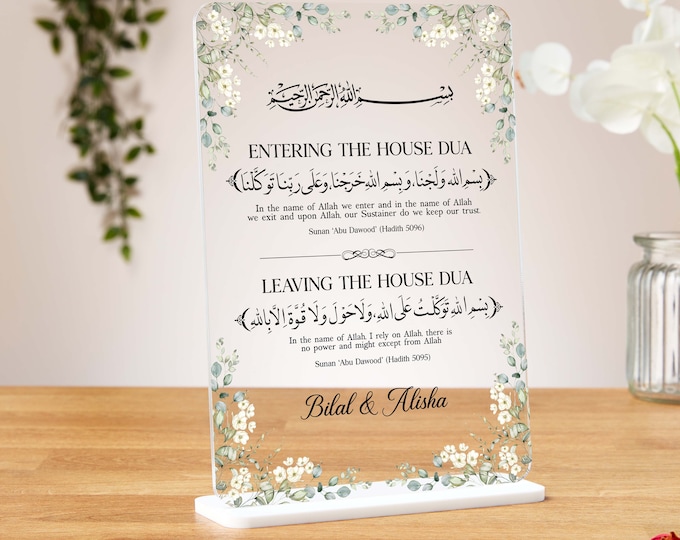 بِسْمِ اللهِ الرَّحْمٰنِ الرَّحِيْمِ
ENTERING THE HOUSE DUA
﴿بِسْمِ اللهِ وَلَجْنَا، وَبِسْمِ اللهِ خَرَجْنَا، وَعَلَى رَبِّنَا تَوَكَّلْنَا﴾
In the name of Allah we enter and in the name of Allah
we exit and upon Allah, our Sustainer do we keep our trust.
Sunan 'Abu Dawood' (Hadith 5096)
LEAVING THE HOUSE DUA
﴿بِسْمِ اللهِ تَوَكَّلْتُ عَلَى اللهِ، وَلَا حَوْلَ وَلَا قُوَّةَ اِلَّا بِاللهِ﴾
In the name of Allah, I rely on Allah, there is
no power and might except from Allah
Sunan 'Abu Dawood' (Hadith 5095)
Bilal & Alisha